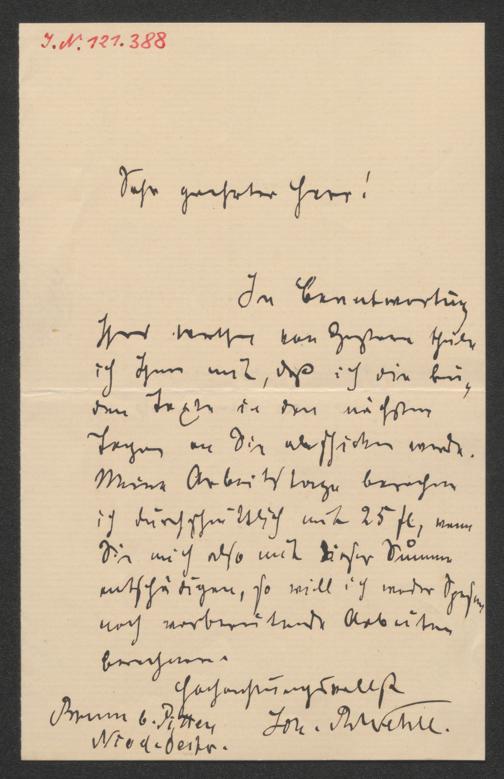 I.N. 121.388
Sehr geehrter Herr!
In Beantwortung
Ihres werthen von Gestern theile
ich Ihnen mit, daß ich die bei-
den Texte in den nächsten
Tagen an Sie abschicken werde.
Meine Arbeitstage berechne
ich durchschnittlich mit 25 fl, wenn
Sie mich also mit dieser Summe
entschädigen, so will ich weder Spesen
noch vorbereitende Arbeiten
berechnen.
Hochachtungsvollst
Brunn b. Pitten Joh.
Nied. Oestr.